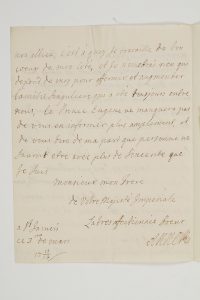 nos alliés, C'est à quoy je travaille de bon
coeur de mon coté, et
depend de moy pour affermir et augmenter
l'amitié singuliere qui a été toujours entre
nous. Le Prince Eugene ne manquera pas
de vous en informer plus amplement et
de vous dire de ma part que personne ne
sauroit etre avec plus de sincerité que
je suis
Monsieur mon frere
de Votre Majesté Imperiale
La tres affectionnée Soeur
ANNE R
a St James
ce 3me de mars